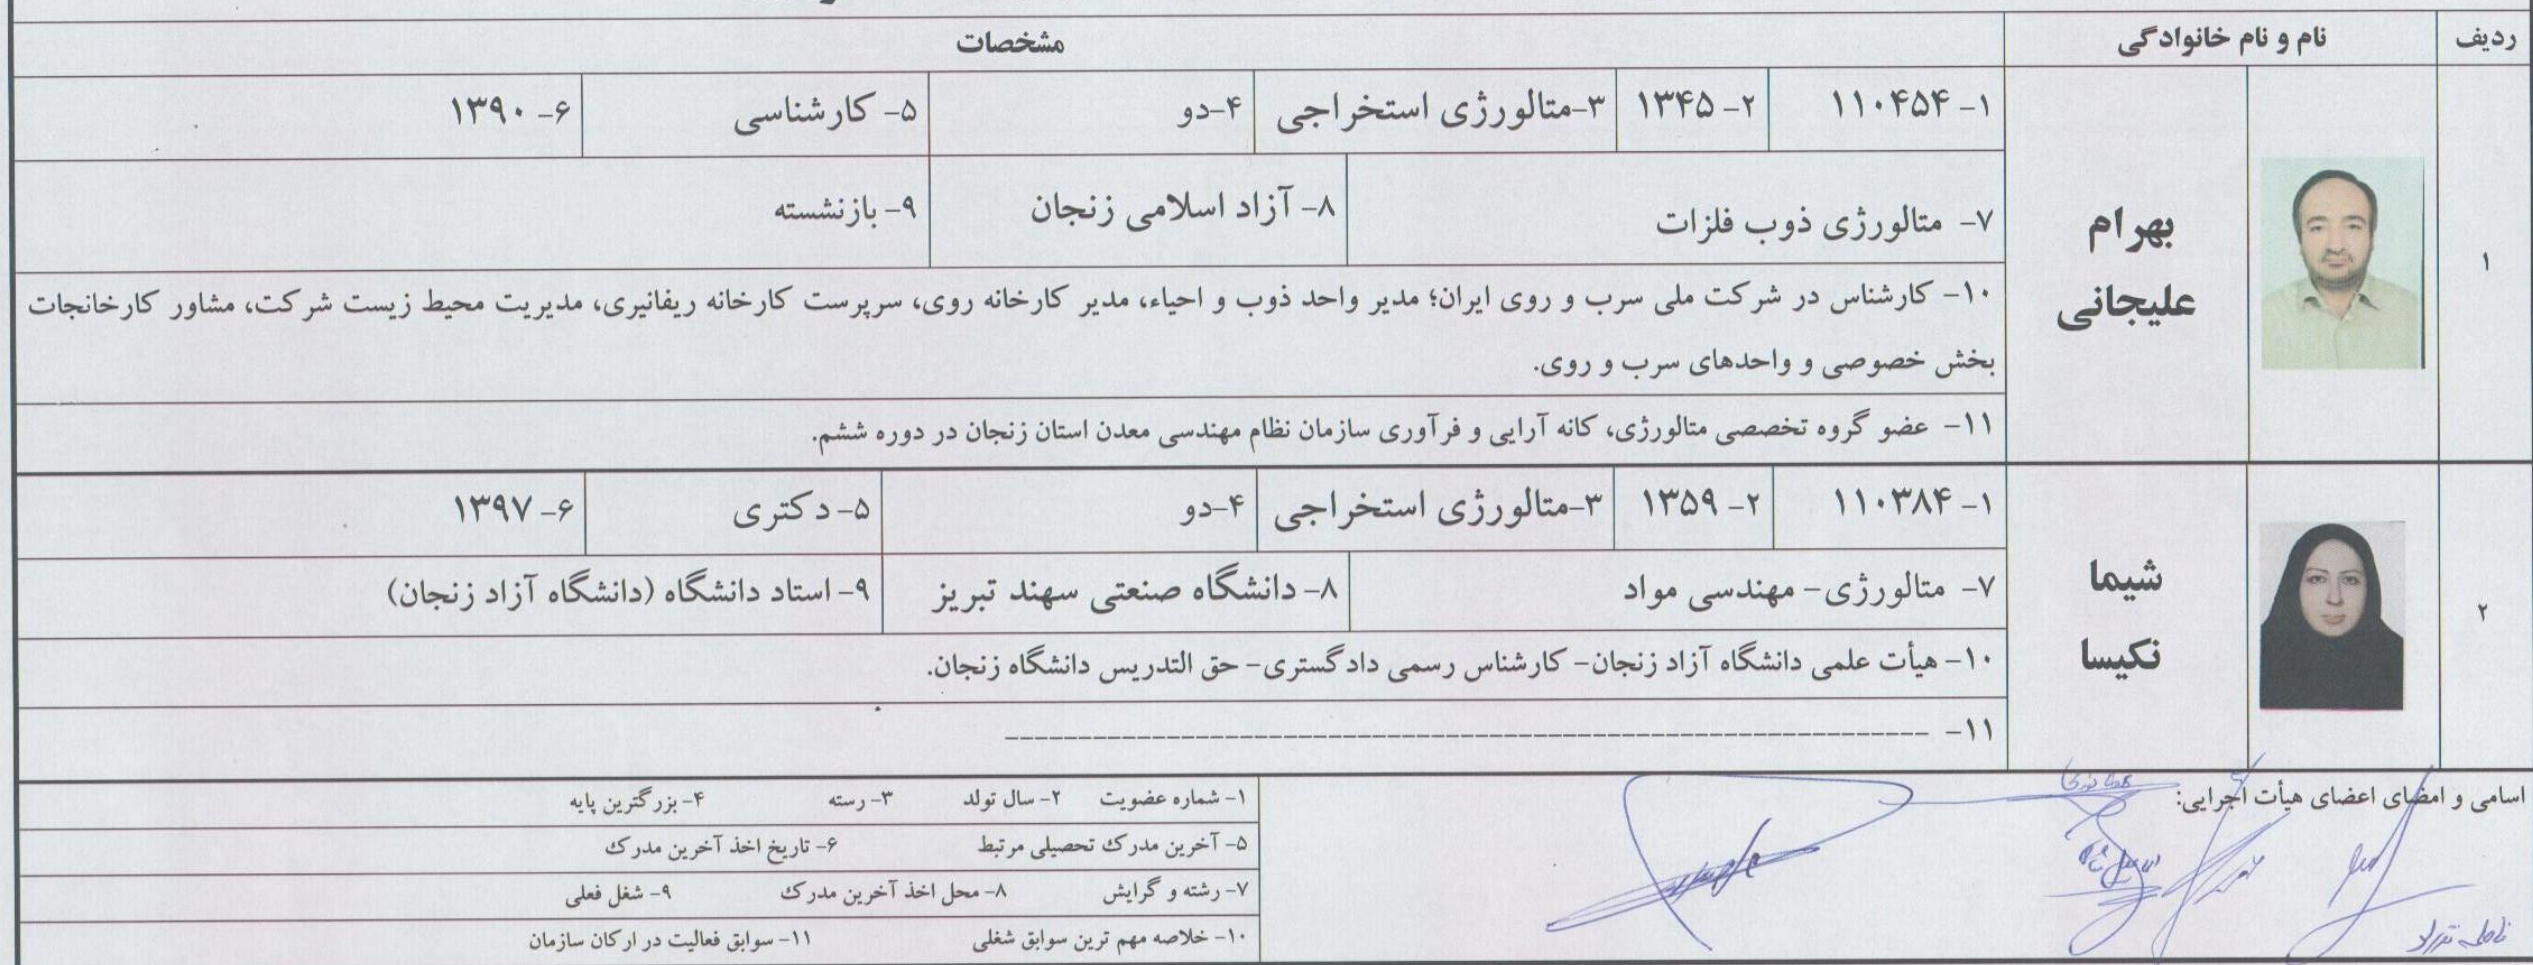 ردیف
نام و نام خانوادگی
مشخصات
۱
بهرام
علیجانی
۱- ۱۱۰۴۵۴
۲- ۱۳۴۵
۳-متالورژی استخراجی
۴-دو
۵- کارشناسی
۶- ۱۳۹۰
۷- متالورژی ذوب فلزات
۸- آزاد اسلامی زنجان
۹- بازنشسته
۱۰- کارشناس در شرکت ملی سرب و روی ایران؛ مدیر واحد ذوب و احیاء، مدیر کارخانه روی، سرپرست کارخانه ریفانیری، مدیریت محیط زیست شرکت، مشاور کارخانجات
بخش خصوصی و واحدهای سرب و روی.
۱۱- عضو گروه تخصصی متالورژی، کانه آرایی و فرآوری سازمان نظام مهندسی معدن استان زنجان در دوره ششم.
۲
شیما
نکیسا
۱- ۱۱۰۳۸۴
۲- ۱۳۵۹
۳-متالورژی استخراجی
۴-دو
۵- دکتری
۶- ۱۳۹۷
۷- متالورژی- مهندسی مواد
۸- دانشگاه صنعتی سهند تبریز
۹- استاد دانشگاه (دانشگاه آزاد زنجان)
۱۰- هیأت علمی دانشگاه آزاد زنجان- کارشناس رسمی دادگستری- حق التدریس دانشگاه زنجان.
۱۱- ---------------------------------------------------------------
اسامی و امضای اعضای هیأت اجرایی:
۱- شماره عضویت ۲- سال تولد ۳- رسته ۴- بزرگترین پایه
۵- آخرین مدرک تحصیلی مرتبط ۶- تاریخ اخذ آخرین مدرک
۷- رشته و گرایش ۸- محل اخذ آخرین مدرک ۹- شغل فعلی
۱۰- خلاصه مهم ترین سوابق شغلی ۱۱- سوابق فعالیت در ارکان سازمان